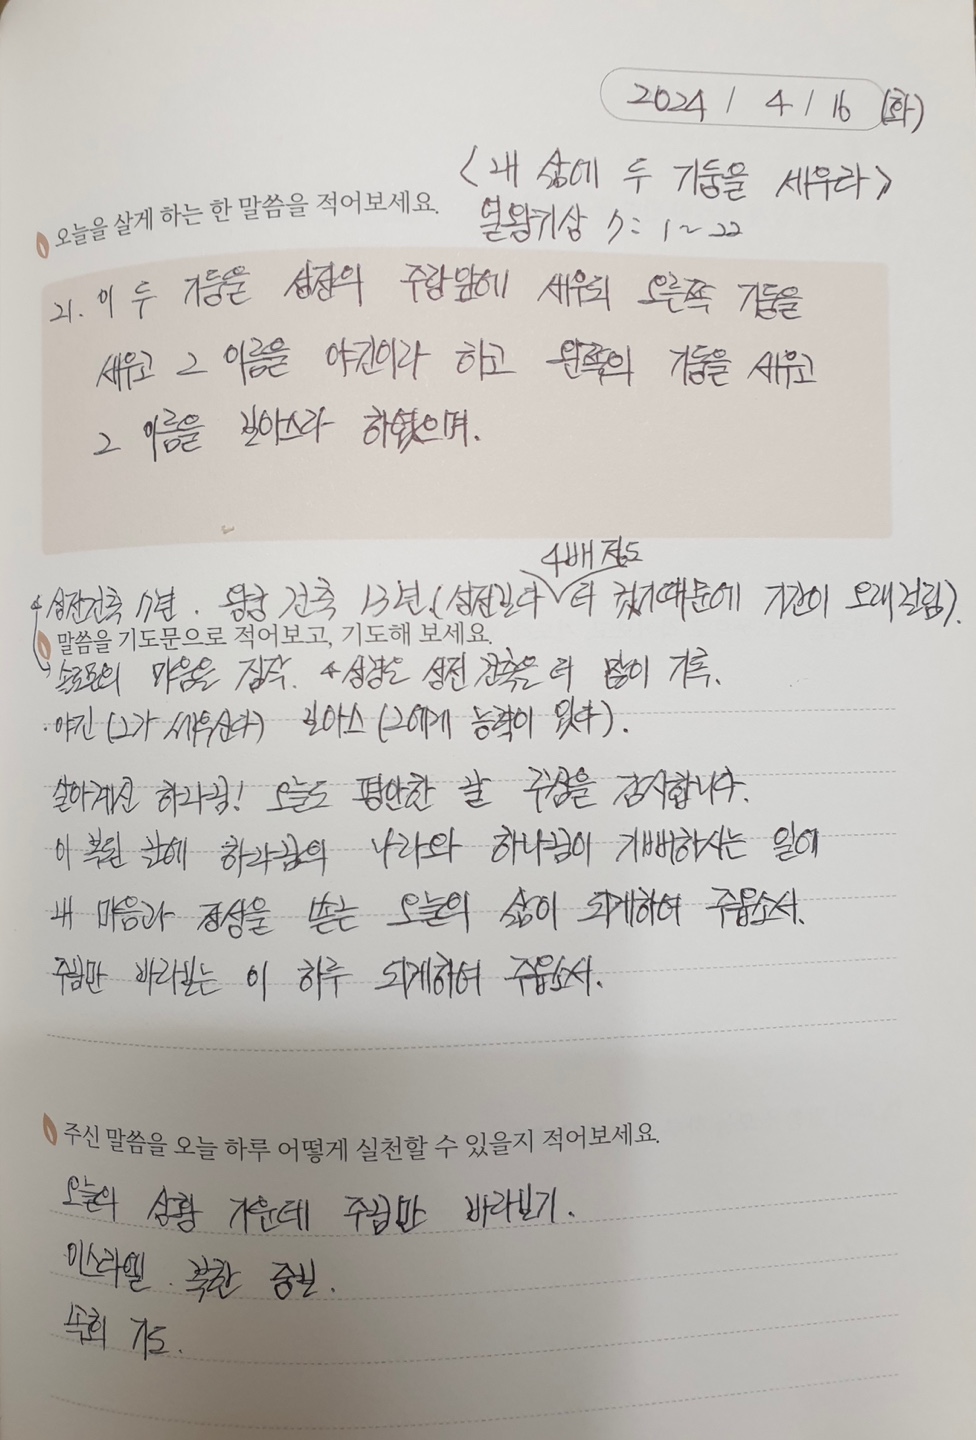 2024 / 4 / 16 (화)
<내 삶에 두 기둥을 세우라>
오늘을 살게 하는 한 말씀을 적어보세요.
열왕기상 7: 1~22
21. 이 두 기둥을 성전의 주랑앞에 세우되 오른쪽 기둥을
세우고 그 이름을 야긴이라 하고 왼쪽의 기둥을 세우고
그 이름을 보아스라 하였으며.
4배 정도
성전건축 7년. 왕궁 건축 13년.(성전보다 더 컸기때문에 기간이 오래걸림).
말씀을 기도문으로 적어보고, 기도해 보세요.
솔로몬의 마음을 짐작. 성경은 성전 건축은 더 많이 기록.
·야긴 (그가 세우신다) 보아스 (그에게 능력이 있다).
살아계신 하나님! 오늘도 평안한 날 주심을 감사합니다.
이 복된 날에 하나님의 나라와 하나님이 기뻐하시는 일에
내 마음과 정성을 쏟는 오늘의 삶이 되게하여 주옵소서.
주님만 바라보는 이 하루 되게하여 주옵소서.
주신 말씀을 오늘 하루 어떻게 실천할 수 있을지 적어보세요.
오늘의 상황 가운데 주님만 바라보기.
이스라엘. 북한 중보.
속회 기도.